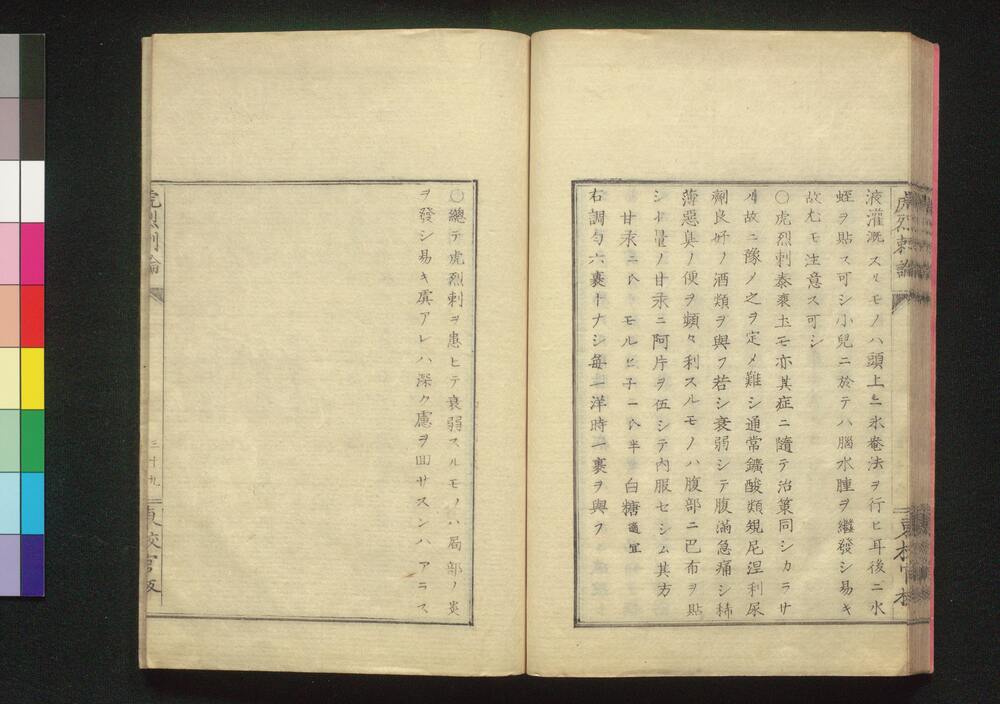 虎烈剌論
液灌漑スルモノハ頭上ニ氷罨法ヲ行ヒ耳後ニ水
蛭ヲ貼ス可シ小兒ニ於テハ腦水腫ヲ繼發シ易キ
故尤モ注意ス可シ
〇虎烈剌泰衷士モ亦其症ニ隨テ治策同シカラサ
ル故ニ豫メ之ヲ定メ難シ通常鑛酸類規尼涅利尿
劑良好ノ酒類ヲ與フ若シ衰弱シテ腹滿急痛シ稀
薄惡臭ノ便ヲ頻々利スルモノハ腹部ニ巴布ヲ貼
シ十量ノ甘汞ニ阿片ヲ伍シテ内服セシム其方
甘汞二 モルヒ子一 半 白糖適宜
右調勻六裹トナシ毎一洋時一裹ヲ與フ
〇總テ虎烈剌ヲ患ヒテ衰弱スルモノハ局部ノ炎
ヲ發シ易キ虞アレハ深ク慮ヲ回サスンハアラス
虎烈剌論
三十九
東校官版